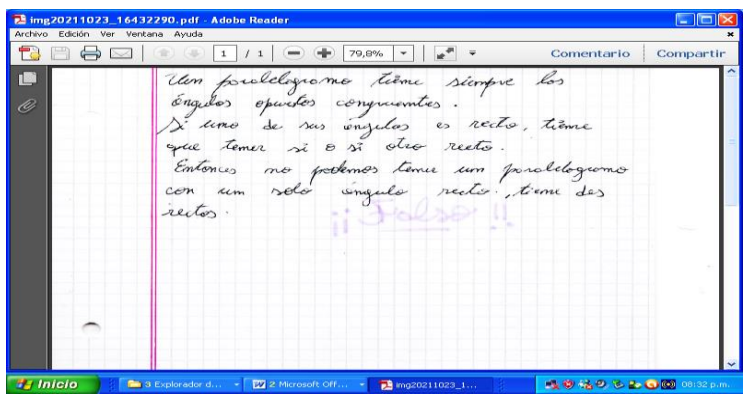 img20211023_16432290.pdf - Adobe Reader
Archivo Edición Ver Ventana Ayuda
1 / 1 79,8% Comentario Compartir
Un paralelogramo tiene siempre los
ángulos opuestos congruentes.
Si uno de sus ángulos es recto, tiene
que tener si o si otro recto.
Entonces no podemos tener un paralelogramo
con un solo ángulo recto, tiene dos
rectos.
¡¡ Falso !!
Inicio 3 Explorador d... 2 Microsoft Off... img20211023_1... 08:32 p.m.